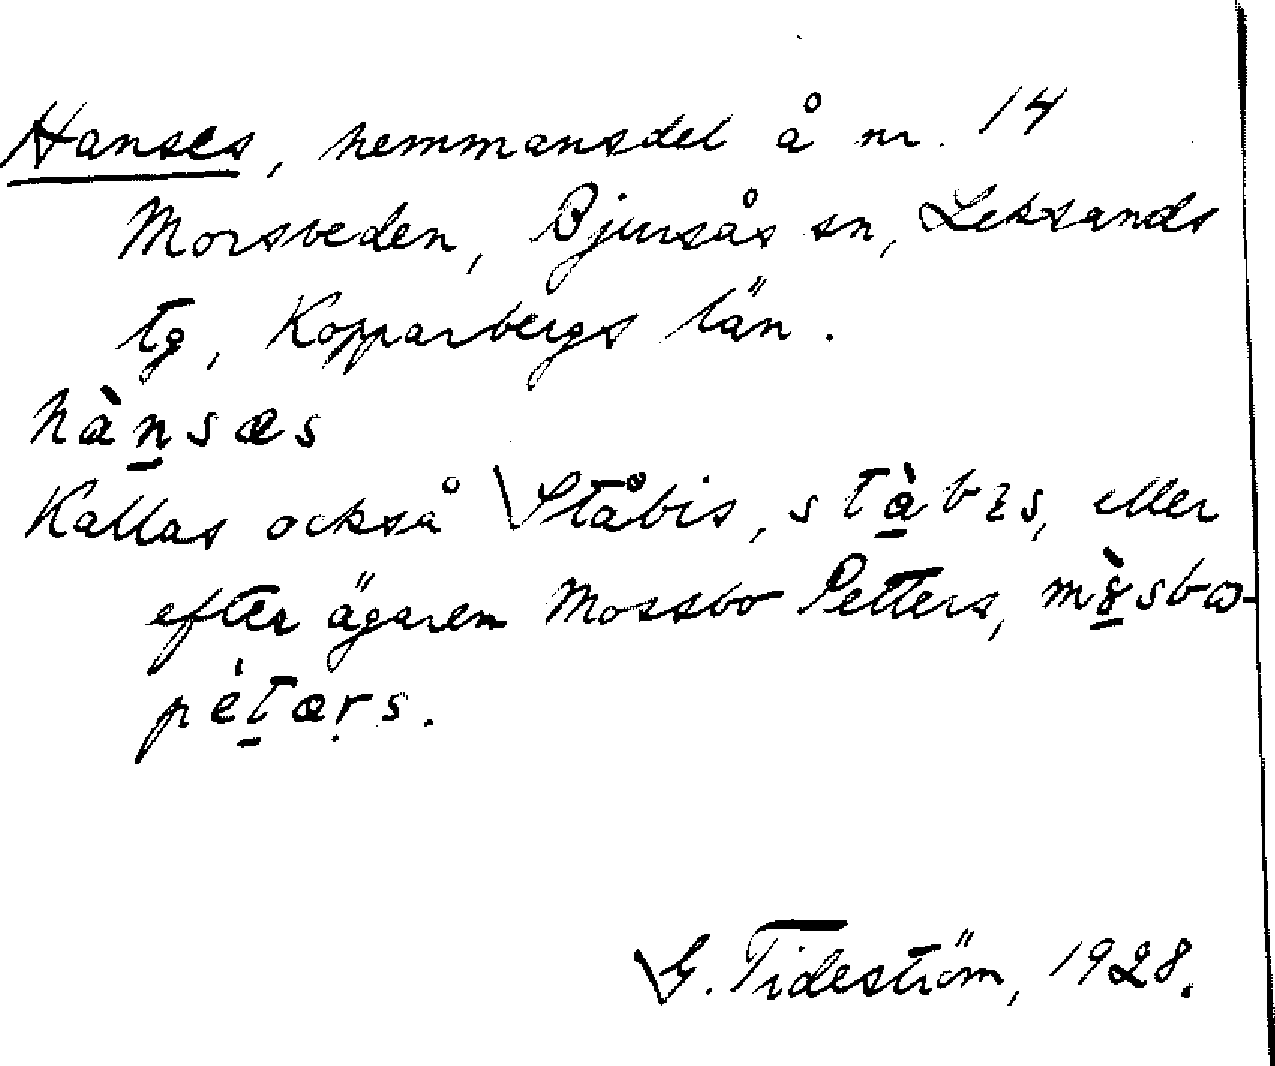 Hanses, hemmansdel å nr. 14
Morsveden, Bjursås sn, Leksands
tg, Kopparbergs län.
hànsæs
Kallas också Ståbis, eller
efter ägaren Mossbo Petters,
pètærs.
G. Tideström, 1928.